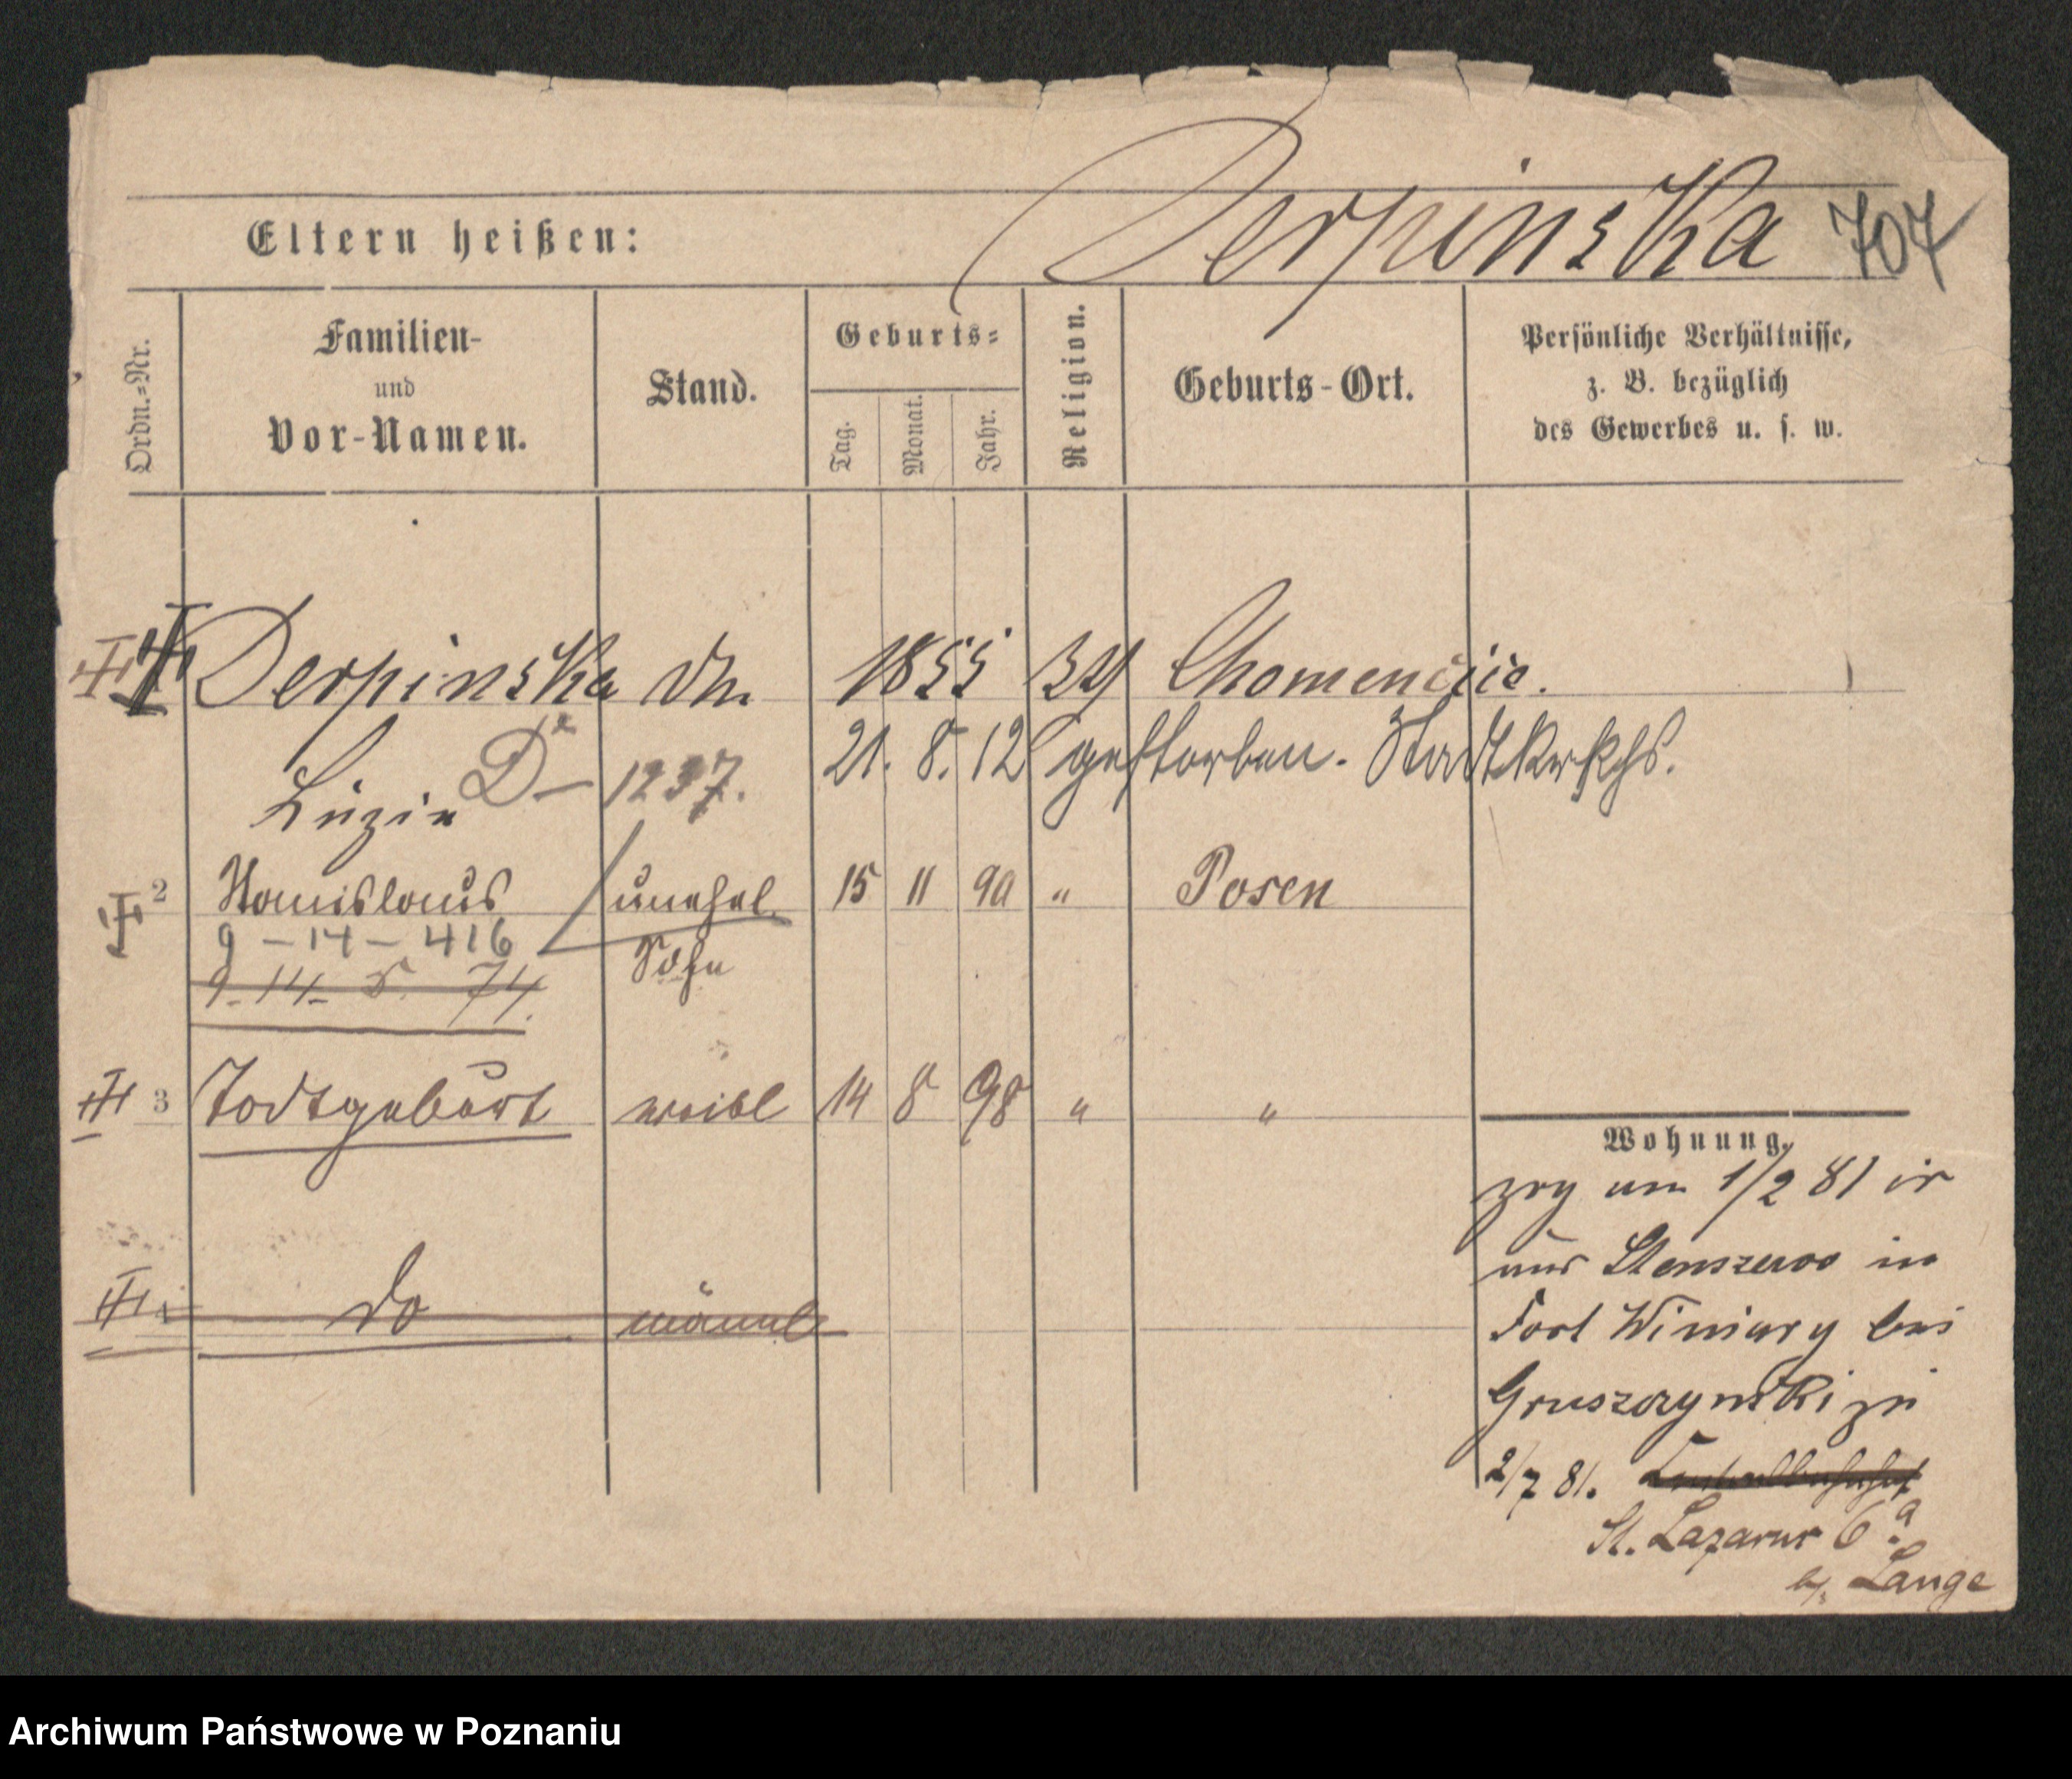 Eltern heißen:
Derpinska 707
Ordn.-Nr.
Familien-
und
Vor-Namen.
Stand.
Geburts=
Tag.
Monat.
Jahr.
Religion.
Geburts-Ort.
Persönliche Verhältnisse,
z. B. bezüglich
des Gewerbes u. s. w.
Derpinska 1855 Chomencice.
21. 8. 12 gestorben. Stadtkrkhs.
Luzia 1237.
2 Stanislaus unehel. 15 11 90 " Posen
9 - 14 - 416 Sohn
9. 14. 5. 74.
3 Todtgeburt weibl 14 8 98 " "
do männl
Wohnung.
zog am 1/2 81 ir
aus Stenszewo in
Fort Winiary bei
Gruszczynski zu
2/7 81.
St. Lazarus 6a
b/. Lange
Archiwum Państwowe w Poznaniu